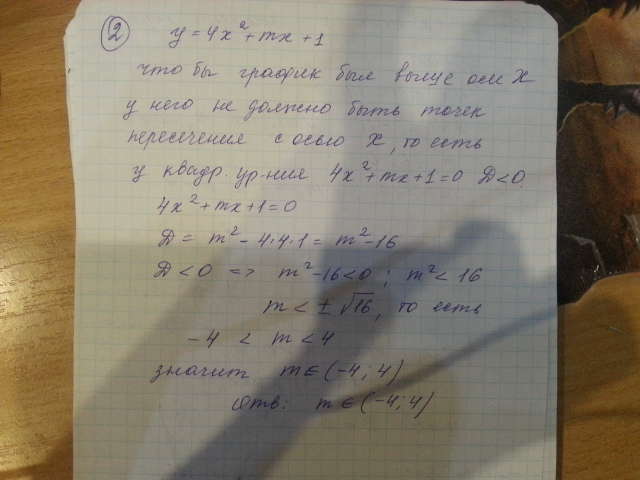 2 y = 4x² + mx + 1
что бы график был выше оси X
у него не должно быть точек
пересечения с осью X, то есть
у квадр. ур-ния 4x² + mx + 1 = 0 D < 0.
4x² + mx + 1 = 0
D = m² - 4·4·1 = m² - 16
D < 0 => m² - 16 < 0 ; m² < 16
m < ± √16, то есть
-4 < m < 4
значит m ∈ (-4; 4)
отв: m ∈ (-4; 4)